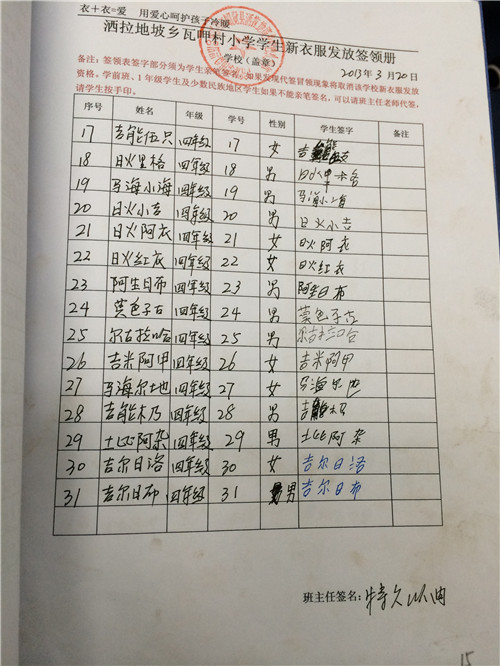 衣+衣=爱 用爱心呵护孩子冷暖
洒拉地坡乡瓦呷村小学学生新衣服发放签领册
学校(盖章) 2013年3月20日
备注:签领表签字部分须为学生亲笔签名,如果发现代签冒领现象将取消该学校新衣服发放
资格。学前班、1年级学生及少数民族地区学生如果不能亲笔签名,可以请班主任老师代签,
请学生按手印。
序号 姓名 年级 学号 性别 学生签字 备注
17 吉能伍只 四年级 17 女 吉能伍
18 日火里格 四年级 18 男 日火里格
19 马海小海 四年级 19 男 马海小海
20 日火小吉 四年级 20 男 日火小吉
21 日火阿衣 四年级 21 女 日火阿衣
22 日火红衣 四年级 22 女 日火红衣
23 阿生日布 四年级 23 男 阿生日布
24 莫色子古 四年级 24 男 莫色子古
25 尔古拉哈 四年级 25 男
26 吉米阿甲 四年级 26 女 吉米阿甲
27 马海尔地 四年级 27 女 马海尔地
28 吉能木乃 四年级 28 男 吉能木乃
29 土比阿杂 四年级 29 男 土比阿杂
30 吉尔日洛 四年级 30 女 吉尔日洛
31 吉尔日布 四年级 31 男 吉尔日布
班主任签名:
15